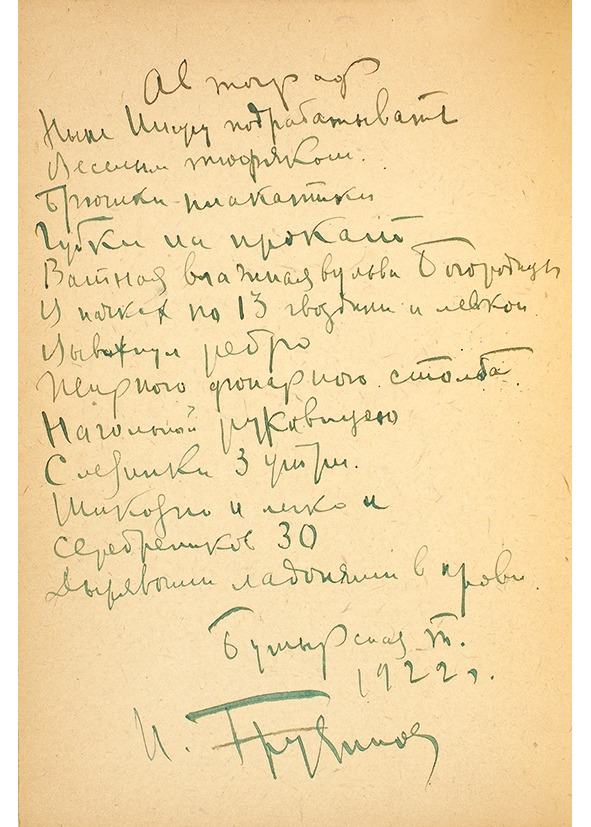 Автограф
Ныне Шкуру подрабатывает
Веселым тюфяком.
Брюшки плакатики
Губки на прокат
Ватная влажная вульва Богородицы
И пачках по 13 гвоздики и левкои
Вывихнул ребро
Жирного фонарного столба
Нагольный руковицею
Слезинки 3 утри.
Шикозно и легко и
Серебреников 30
Дырявыми ладонями в крови.
Бутырская т.
1922 г.
И. Грузинов